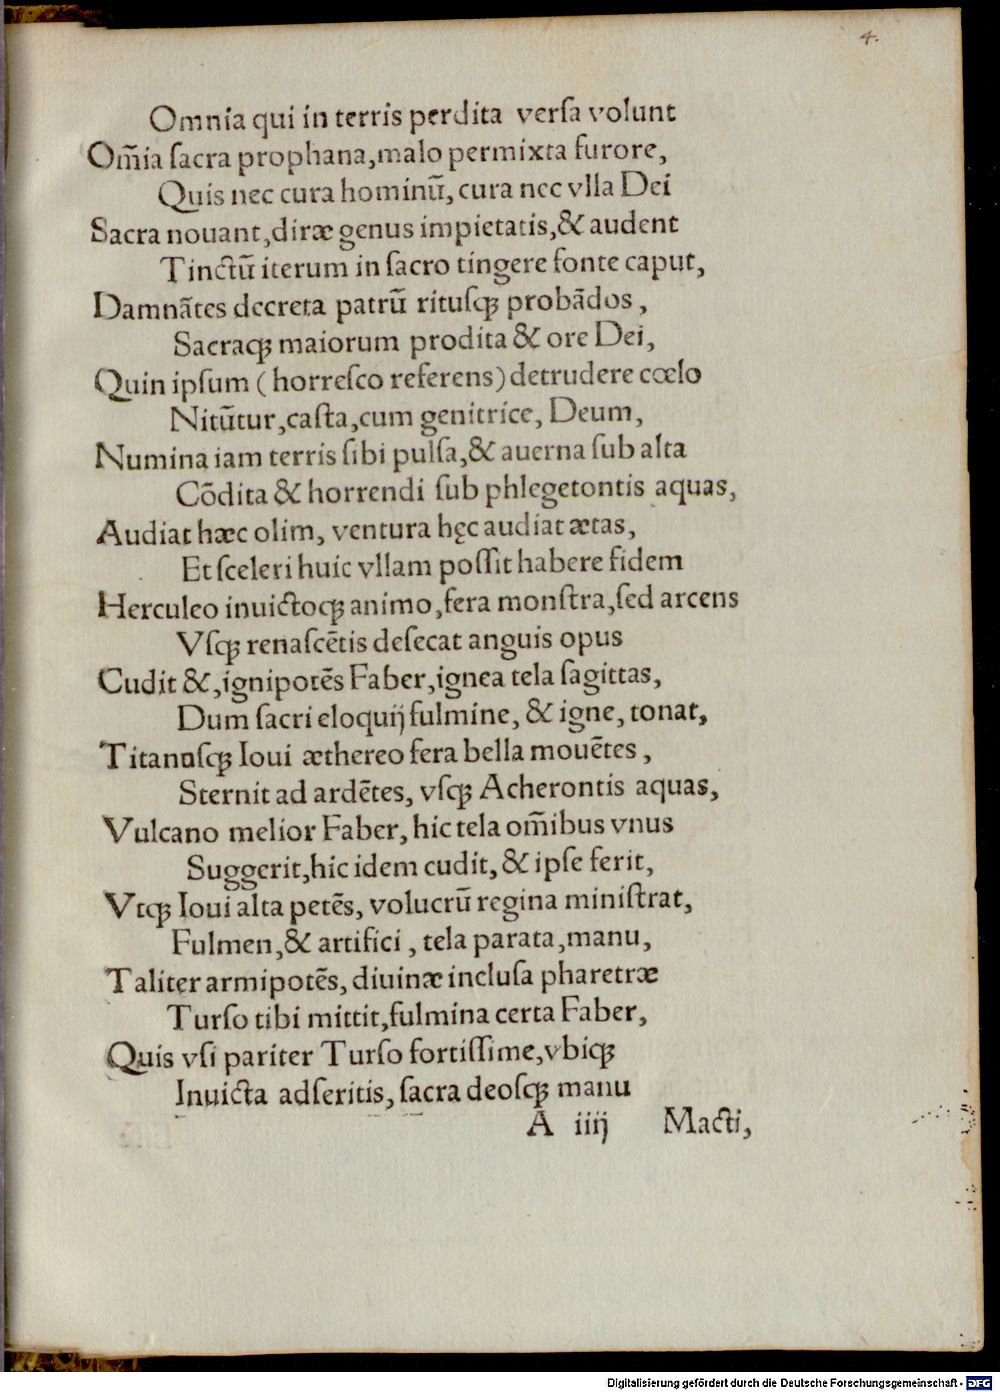 4.
Omnia qui in terris perdita versa volunt
Om̃ia sacra prophana, malo permixta furore,
Quis nec cura hominũ, cura nec vlla Dei
Sacra nouant, diræ genus impietatis, & audent
Tinctũ iterum in sacro tingere fonte caput,
Damnãtes decreta patrũ ritusq̃ probãdos,
Sacraq̃ maiorum prodita & ore Dei,
Quin ipsum (horresco referens) detrudere cœlo
Nitũtur, casta, cum genitrice, Deum,
Numina iam terris sibi pulsa, & auerna sub alta
Cõdita & horrendi sub phlegetontis aquas,
Audiat hæc olim, ventura hęc audiat ætas,
Et sceleri huic vllam possit habere fidem
Herculeo inuictoq̃ animo, fera monstra, sed arcens
Vsq̃ renascẽtis desecat anguis opus
Cudit &, ignipotẽs Faber, ignea tela sagittas,
Dum sacri eloquij fulmine, & igne, tonat,
Titanasq̃ Ioui æthereo fera bella mouẽtes,
Sternit ad ardẽtes, vsq̃ Acherontis aquas,
Vulcano melior Faber, hic tela om̃ibus vnus
Suggerit, hic idem cudit, & ipse ferit,
Vtq̃ Ioui alta petẽs, volucrũ regina ministrat,
Fulmen, & artifici, tela parata, manu,
Taliter armipotẽs, diuinæ inclusa pharetræ
Turso tibi mittit, fulmina certa Faber,
Quis vsi pariter Turso fortissime, vbiq̃
Inuicta adseritis, sacra deosq̃ manu
A iiij Macti,
Digitalisierung gefördert durch die Deutsche Forschungsgemeinschaft - DFG